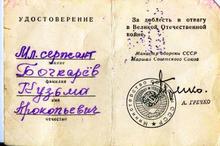 УДОСТОВЕРЕНИЕ
Мл. сержант
звание
Бочкарёв
фамилия
Кузьма
имя
Прокопьевич
отчество
За доблесть и отвагу
в Великой Отечественной
войне.
Министр обороны СССР
Маршал Советского Союза
А. ГРЕЧКО